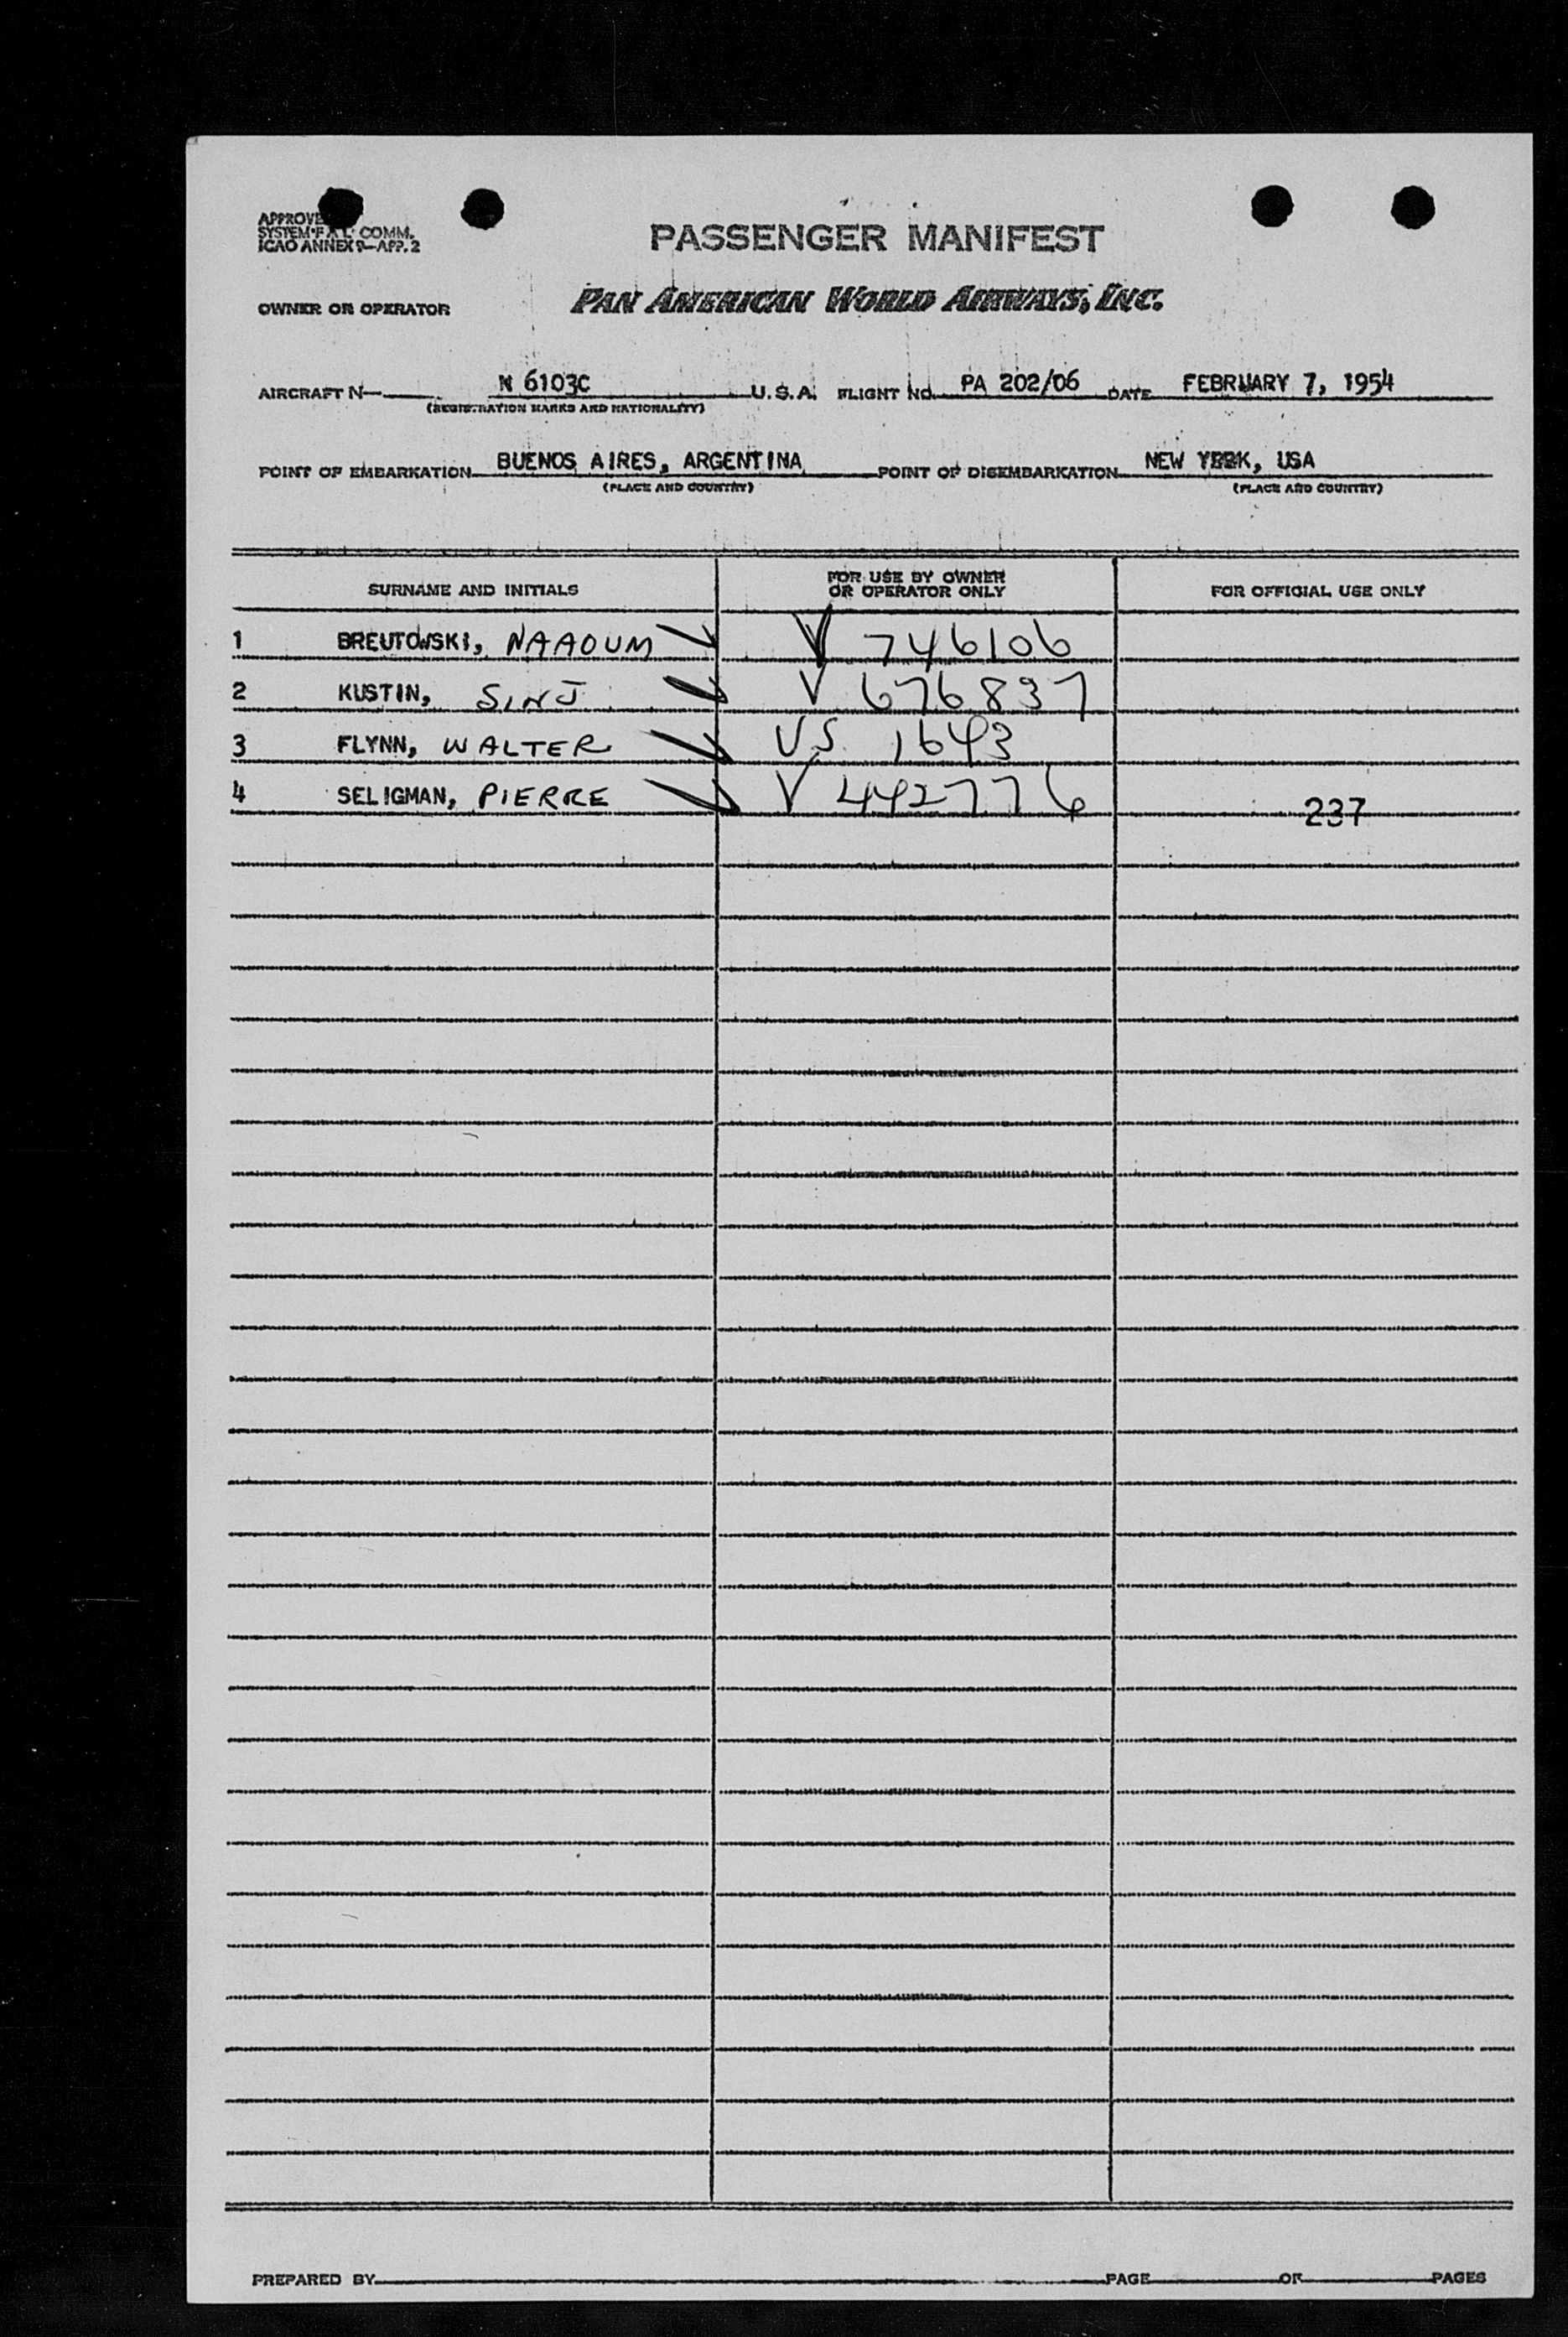 PASSENGER MANIFEST
SYSTEM F A L COMM.
ICAO ANNEX 9—APP. 2
OWNER OR OPERATOR PAN AMERICAN WORLD AIRWAYS, INC.
AIRCRAFT N— N 6103C U.S.A. FLIGHT NO. PA 202/06 DATE FEBRUARY 7, 1954
(REGISTRATION MARKS AND NATIONALITY)
POINT OF EMBARKATION BUENOS AIRES, ARGENTINA POINT OF DISEMBARKATION NEW , USA
(PLACE AND COUNTRY) (PLACE AND COUNTRY)
SURNAME AND INITIALS FOR USE BY OWNER OR OPERATOR ONLY FOR OFFICIAL USE ONLY
1 BREUTOWSKI, NAAOUM V 746106
2 KUSTIN, SINJ V 676837
3 FLYNN, WALTER VS 1643
4 SELIGMAN, PIERRE V 442776 237
PREPARED BY PAGE OF PAGES